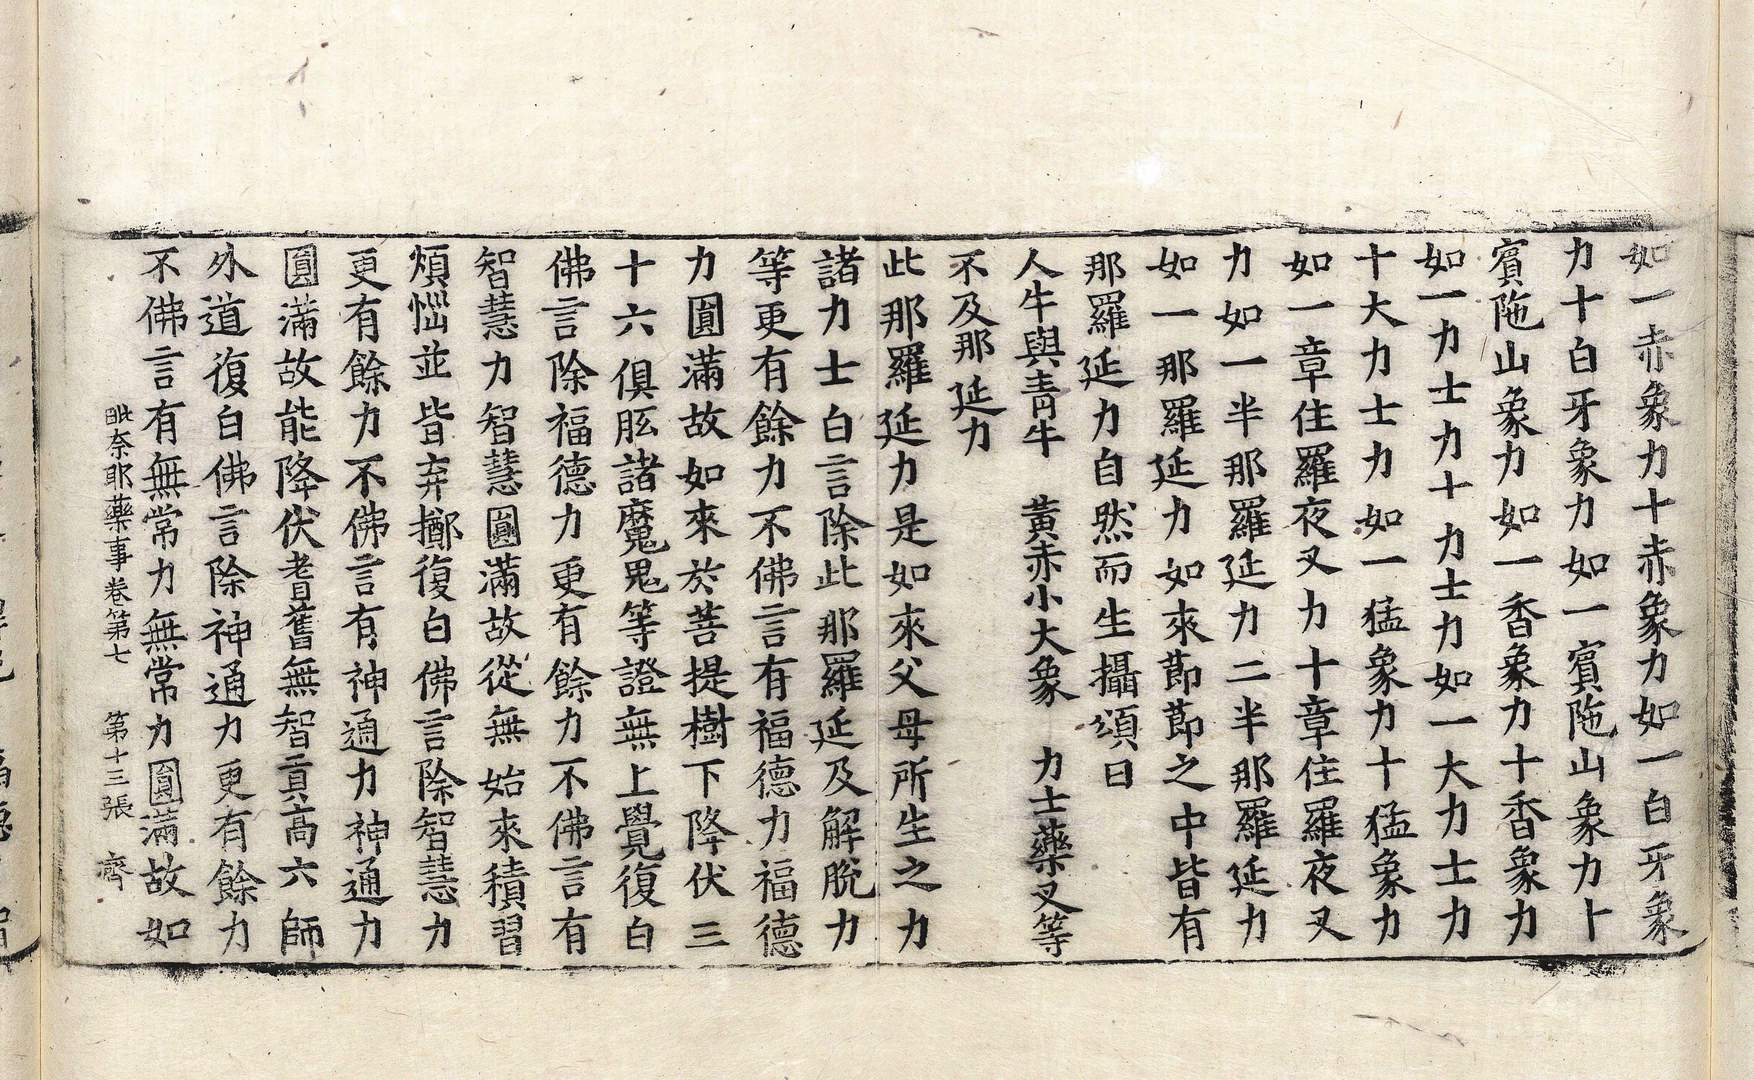 如一赤象力十赤象力如一白牙象
力十白牙象力如一賓陁山象力十
賓陁山象力如一香象力十香象力
如一力士力十力士力如一大力士力
十大力士力如一猛象力十猛象力
如一章住羅夜叉力十章住羅夜叉
力如一半那羅延力二半那羅延力
如一那羅延力如來節節之中皆有
那羅延力自然而生攝頌曰
人牛與青牛　黃赤小大象　力士藥叉等
不及那延力
此那羅延力是如來父母所生之力
諸力士白言除此那羅延及解脫力
等更有餘力不佛言有福德力福德
力圓滿故如來於菩提樹下降伏三
十六俱胝諸魔鬼等證無上覺復白
佛言除福德力更有餘力不佛言有
智慧力智慧圓滿故從無始來積習
煩惱並皆弃擲復白佛言除智慧力
更有餘力不佛言有神通力神通力
圓滿故能降伏耆舊無智貢高六師
外道復白佛言除神通力更有餘力
不佛言有無常力無常力圓滿故如
毗奈耶藥事卷第七　第十三張　齊